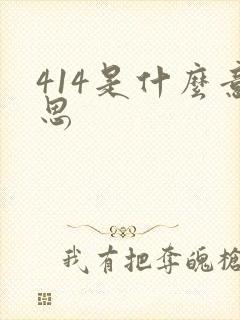 414是什麼意
思
我有把奪魄槍